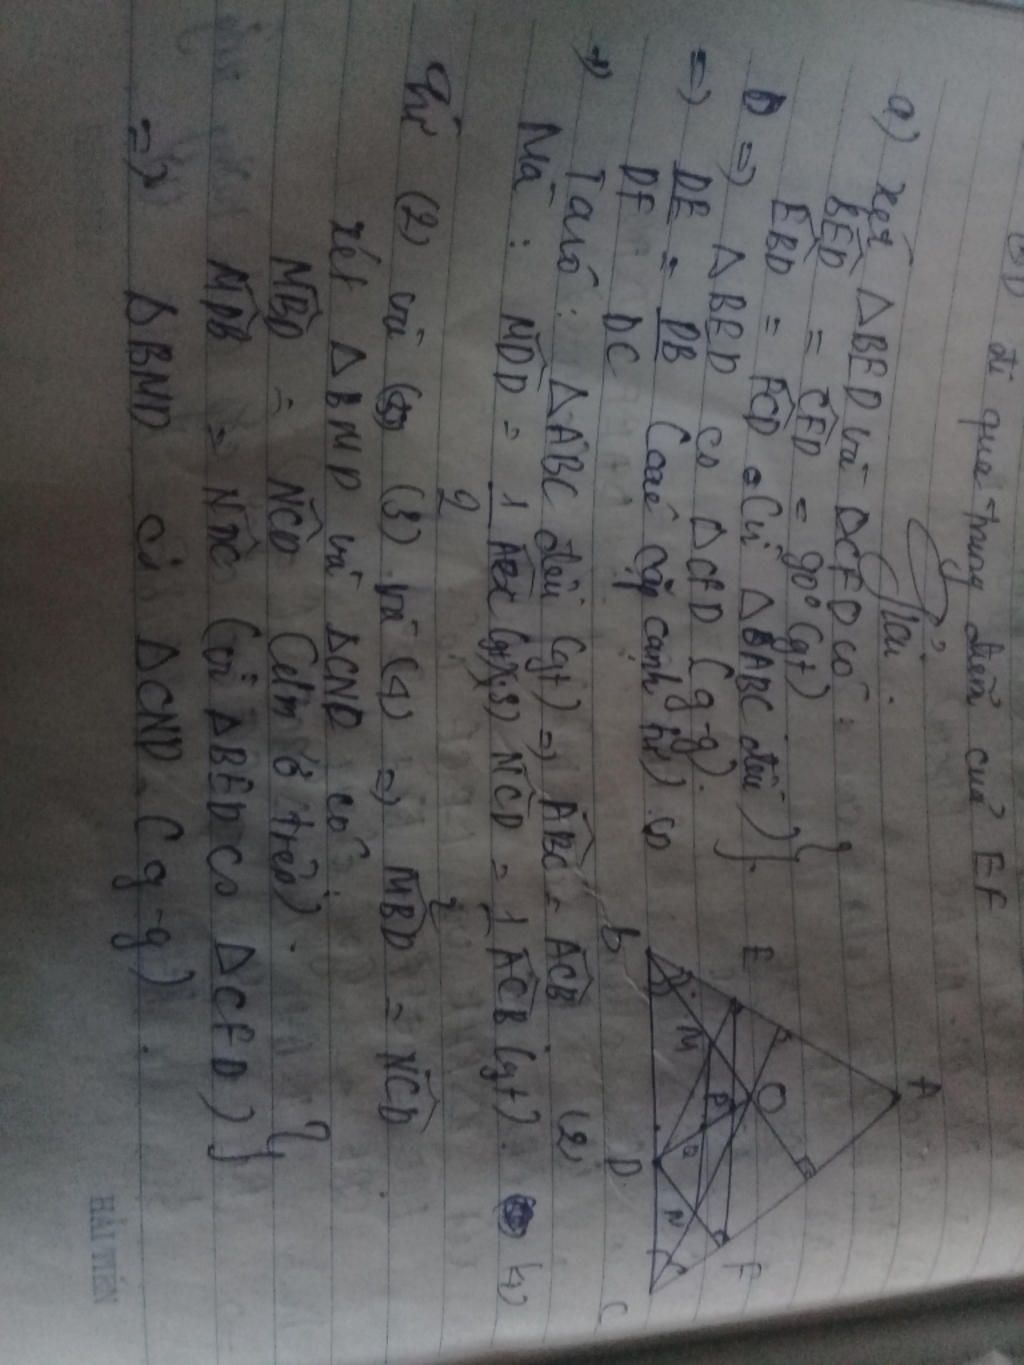 OD đi qua trung điểm của EF
Giải.
a) Xét △BED và △CFD có:
BED = CFD = 90° (gt)
EBD = FCD (vì △ABC đều)
=> △BED ∽ △CFD (g-g).
=> DE/DF = DB/DC (các cặp cạnh tỉ)
Ta có: △ABC đều (gt) => ABC = ACB (2)
Mà: MBD = 1/2 ABC (gt) (3) NCD = 1/2 ACB (gt). (4)
Từ (2) và (3) và (4) => MBD = NCD
Xét △BMD và △CND có:
MBD = NCD (c/m ở trên).
MDB = NDC (vì △BED ∽ △CFD)
=> △BND ∽ △CND (g-g).
A
E
O
M
P
Q
N
F
B
D
C
HẢI TIẾN